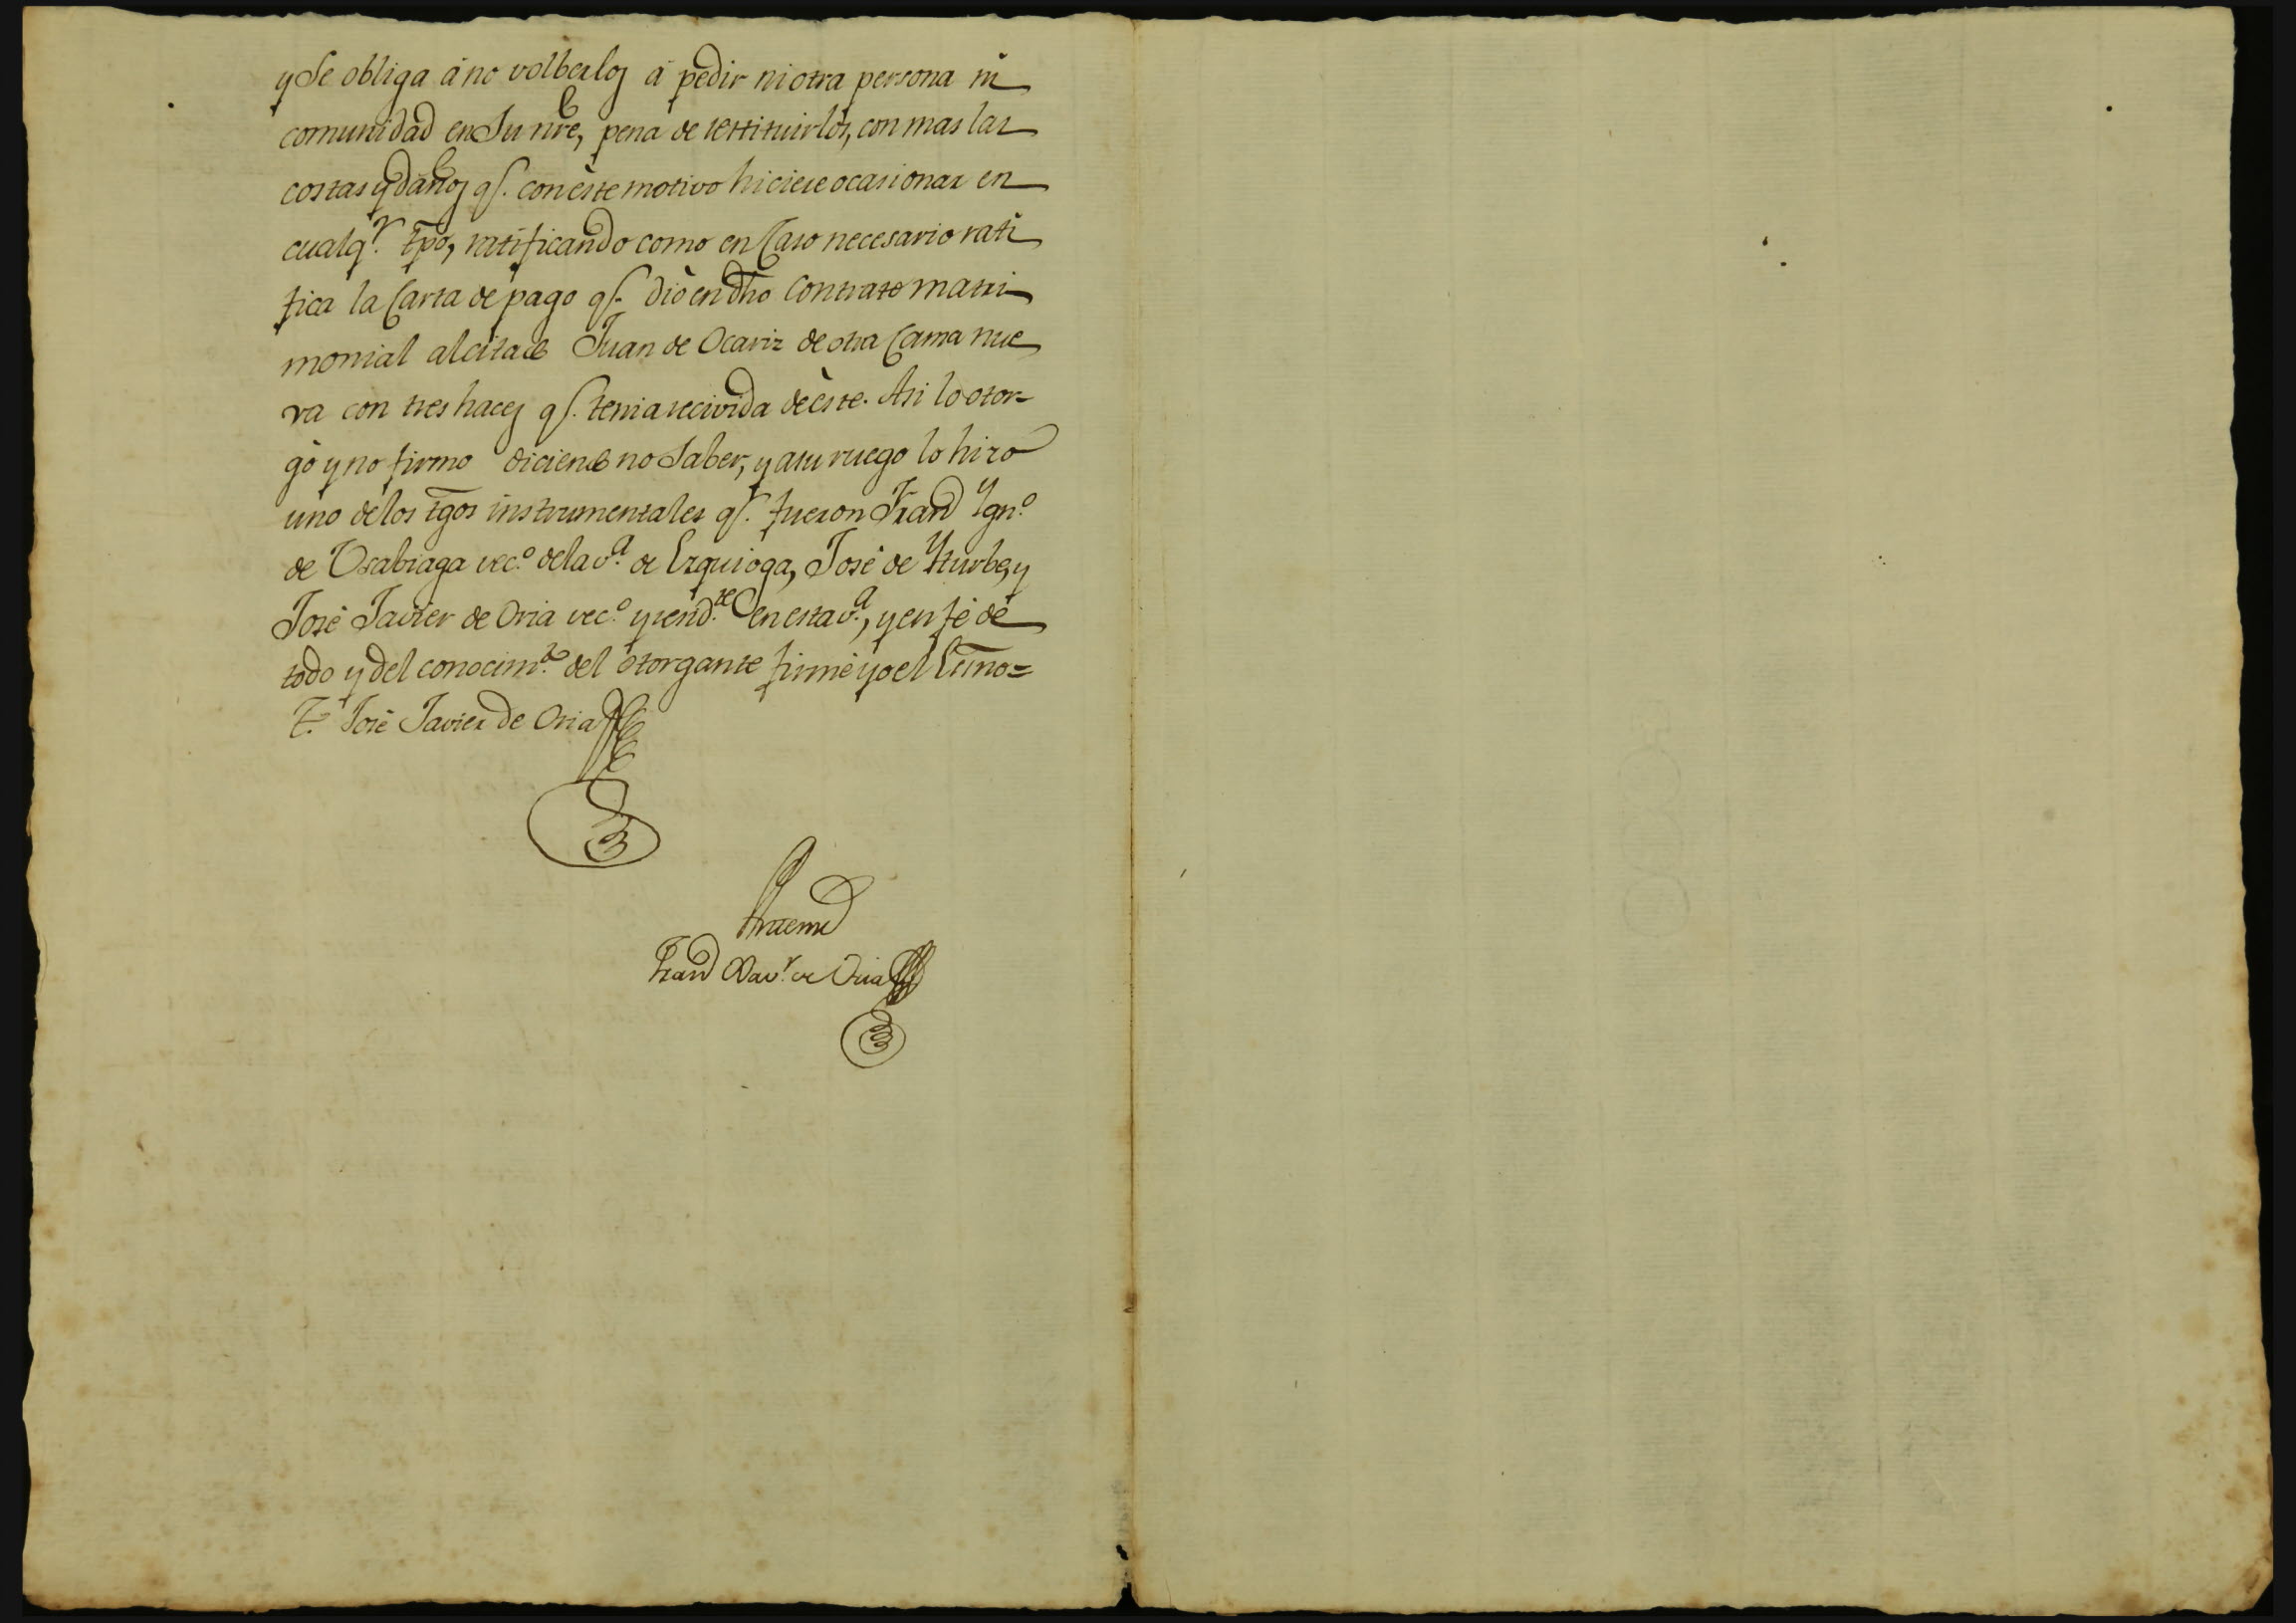 y Se obliga á no volberlos á pedir ni otra persona ni
comunidad en Su nr̃e, pena de restituirlos, con mas las
costas y daños q͠. con éste motivo hiciere ocasionar en
cualq.r tp̃o, ratificando como en Caso necesario rati
fica la Carta de pago q͠. dió en dh̃o Contrato matri
monial al citado Juan de Ocariz de otra Cama nue
va con tres haces q͠. tenia recivida de éste. Asi lo otor-
gó y no firmo diciendo no Saber, y a su ruego lo hizo
uno de los tg̃os instrumentales q͠. fueron Fran.co Ygn.o
de Usabiaga vec.o de la v.a de Ezquioga, José de Yturbe, y
José Javier de Oria vec.o y resid.te en esta v.a, y en fé de
todo y del conocim.to del otorgante firmé yo el Es͠no=
T.o José Javier de Oria
Antemi
Fran.co Xav.r de Oria